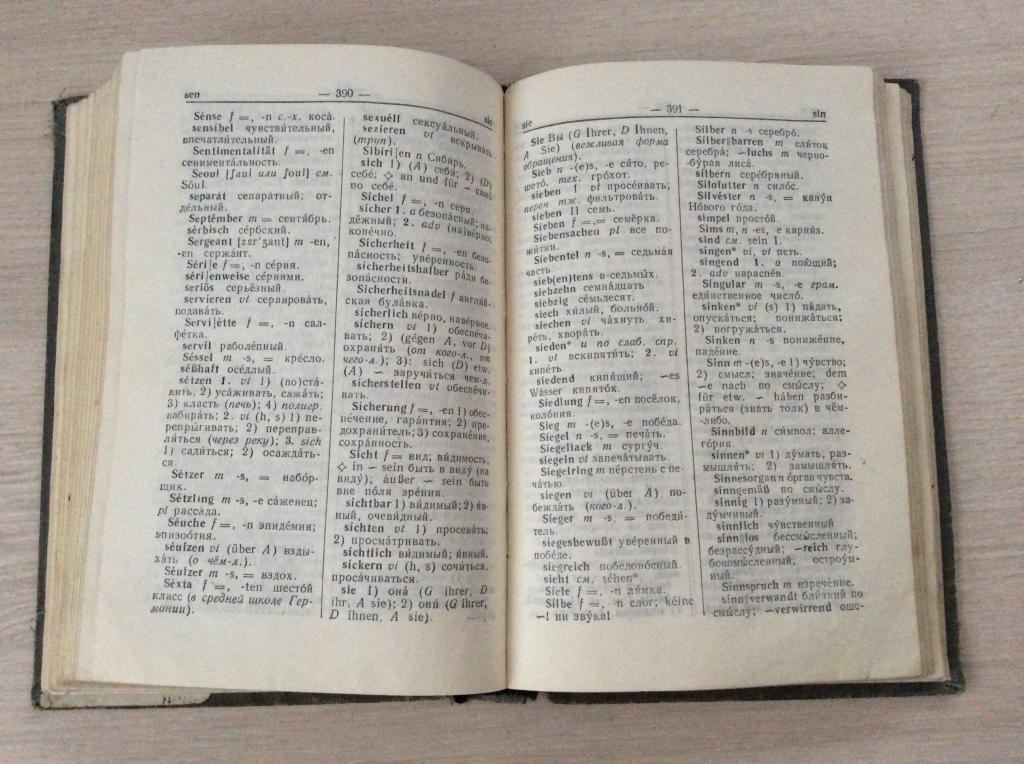 sen
— 390 —
sie
Sénse f =, -n с.-х. коса́.
sensíbel чувстви́тельный,
впечатли́тельный.
Sentimentalität f =, -en
сениме́нта́льность.
Seoul [ʃaul или ʃoul] см.
Söul.
separát сепара́тный; от-
де́льный.
Septémber m = сентя́брь.
sérbisch се́рбский.
Sergeant [zɛr'ʒant] m -en,
-en сержа́нт.
Séri|e f =, -n се́рия.
séri|enweise се́риями.
seriös серьёзный.
servíeren vt сервирова́ть,
подава́ть.
Servi|étte f =, -n сал-
фе́тка.
servíl раболе́пный.
Séssel m -s, = кре́сло.
séßhaft осе́длый.
sétzen 1. vt 1) (по)ста́-
вить; 2) уса́живать, сажа́ть;
3) класть (печь); 4) полигр.
набира́ть; 2. vi (h, s) 1) пе-
репры́гивать; 2) переправ-
ля́ться (через реку); 3. sich
1) сади́ться; 2) осажда́ть-
ся
Sétzer m -s, = набо́р-
щик.
Sétzling m -s, -e са́женец;
pl расса́да.
Séuche f =, -n эпиде́мия;
эпизоо́тия.
séufzen vi (über A) взды-
ха́ть (о чём-л.).
Séufzer m -s, = вздох.
Séxta f =, -ten шесто́й
класс (в средней школе Гер-
мании).
sexuéll сексуа́льный.
sezíeren vt вскрыва́ть
(труп).
Sibíri|en n Сиби́рь.
sich 1) (A) себя́; 2) (D)
себе́; ◇ an und für ~ само́
по себе́.
Síchel f =, -n серп.
sícher 1. a безопа́сный; на-
дёжный; 2. adv (на)ве́рно;
коне́чно.
Sícherheit f =, -en безо-
па́сность; уве́ренность.
sícherheitshalber ра́ди бе-
зопа́сности.
Sícherheitsnadel f англи́й-
ская була́вка.
sícherlich ве́рно, наве́рное.
síchern vt 1) обеспе́чи-
вать; 2) (gégen A, vor D)
охраня́ть (от кого-л., от
чего-л.); 3): sich (D) etw.
(A) ~ заруча́ться чем-л.
sícherstellen vt обеспе́чи-
вать.
Sícherung f =, -en 1) обес-
пе́чение, гара́нтия; 2) пре-
дохрани́тель; 3) сохране́ние,
сохра́нность.
Sicht f = вид; ви́димость;
◇ in ~ sein быть в виду́ (на
виду́); áußer ~ sein быть
вне по́ля зре́ния.
síchtbar 1) ви́димый; 2) я́в-
ный, очеви́дный.
síchten vt 1) просева́ть;
2) просма́тривать.
síchtlich ви́димый; я́вный.
síckern vi (h, s) сочи́ться,
проса́чиваться.
sie 1) она́ (G íhrer, D
ihr, A sie); 2) они́ (G íhrer,
D íhnen, A sie).
sie
— 391 —
sin
Sie Вы (G Íhrer, D Íhnen,
A Sie) (вежливая форма
обращения).
Sieb n -(e)s, -e си́то, ре-
шето́, тех. гро́хот.
síeben I vt просе́ивать;
перен тж. фильтрова́ть.
síeben II семь.
Síeben f =,= семёрка.
Síebensachen pl все по-
жи́тки.
Síebentel n -s, = седьма́я
часть
síeb(en)tens в-седьмы́х.
síebzehn семна́дцать
síebzig се́мьдесят.
siech хи́лый, больно́й.
síechen vi ча́хнуть хи-
ре́ть, хвора́ть.
síeden* и по слаб. спр.
1. vt вскипяти́ть; 2. vi
кипе́ть.
síedend кипя́щий; ~es
Wásser кипято́к.
Síedlung f =, -en посёлок,
коло́ния.
Sieg m -(e)s, -e побе́да.
Síegel n -s, = печа́ть.
Síegellack m сургу́ч.
síegeln vt запеча́тывать.
Síegelring m пе́рстень с пе-
ча́тью.
síegen vi (über A) по-
бежда́ть (кого-л.).
Síeger m -s, = победи́-
тель.
síegesbewußt уве́ренный в
побе́де.
síegreich победоно́сный.
sieht см. séhen*
Síele f =, -n ля́мка.
Sílbe f =, -n слог; kéine
~! ни зву́ка!
Sílber n -s серебро́.
Sílber|barren m сли́ток
серебра́; ~fuchs m черно-
бу́рая лиса́.
sílbern сере́бряный.
Sílofutter n си́лос.
Silvéster n -s, = кану́н
Но́вого го́да.
símpel просто́й.
Sims m, n -es, -e карни́з.
sind см. sein I.
síngen* vi, vt петь.
síngend 1. a пою́щий;
2. adv нараспе́в.
Síngular m -s, -e грам.
еди́нственное число́.
sínken* vi (s) 1) па́дать,
опуска́ться; понижа́ться;
2) погружа́ться.
Sínken n -s пониже́ние,
паде́ние.
Sinn m -(e)s, -e 1) чу́вство;
2) смысл; значе́ние; dem
~e nach по смы́слу; ◇
für etw. ~ háben разби-
ра́ться (знать толк) в чём-
либо.
Sínnbild n си́мвол; алле-
го́рия.
sínnen* vi 1) ду́мать, раз-
мышля́ть; 2) замышля́ть.
Sínnesorgan n о́рган чувств.
sínngemäß по смы́слу.
sínnig 1) разу́мный; 2) за-
ду́мчивый.
sínnlich чу́вственный
sínn|los бессмы́сленный;
безрассу́дный; ~reich глу-
бокомы́сленный; остроу́м-
ный.
Sínnspruch m изрече́ние.
sínn|verwandt бли́зкий по
смы́слу; ~verwirrend оше-